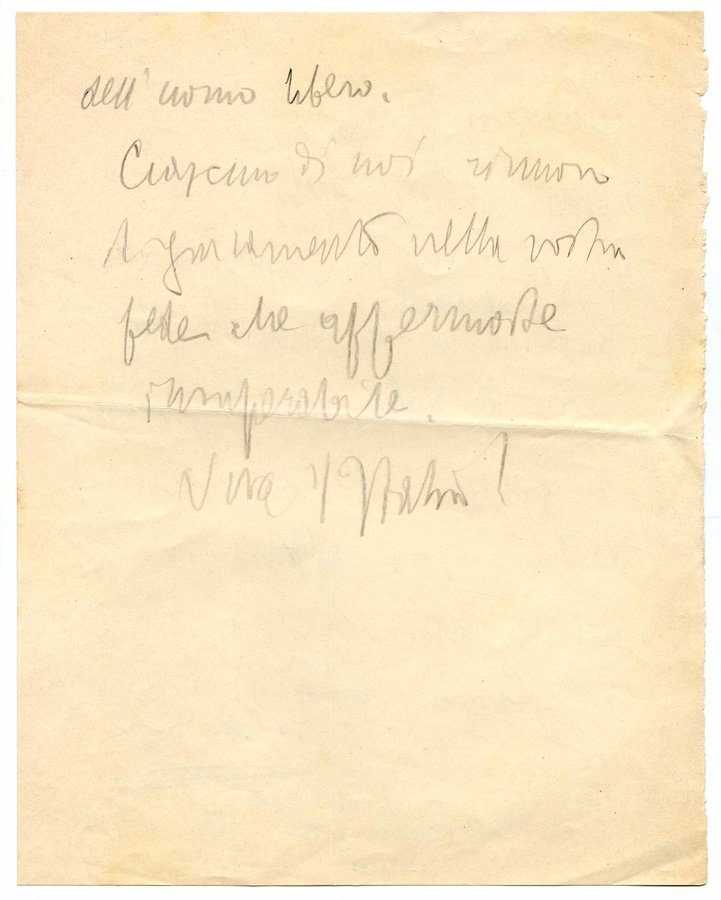 dell'uomo libero.
Ciascuno di noi rinnova
il giuramento nella vostra
fede che affermaste
insuperabile.
Viva l'Italia!